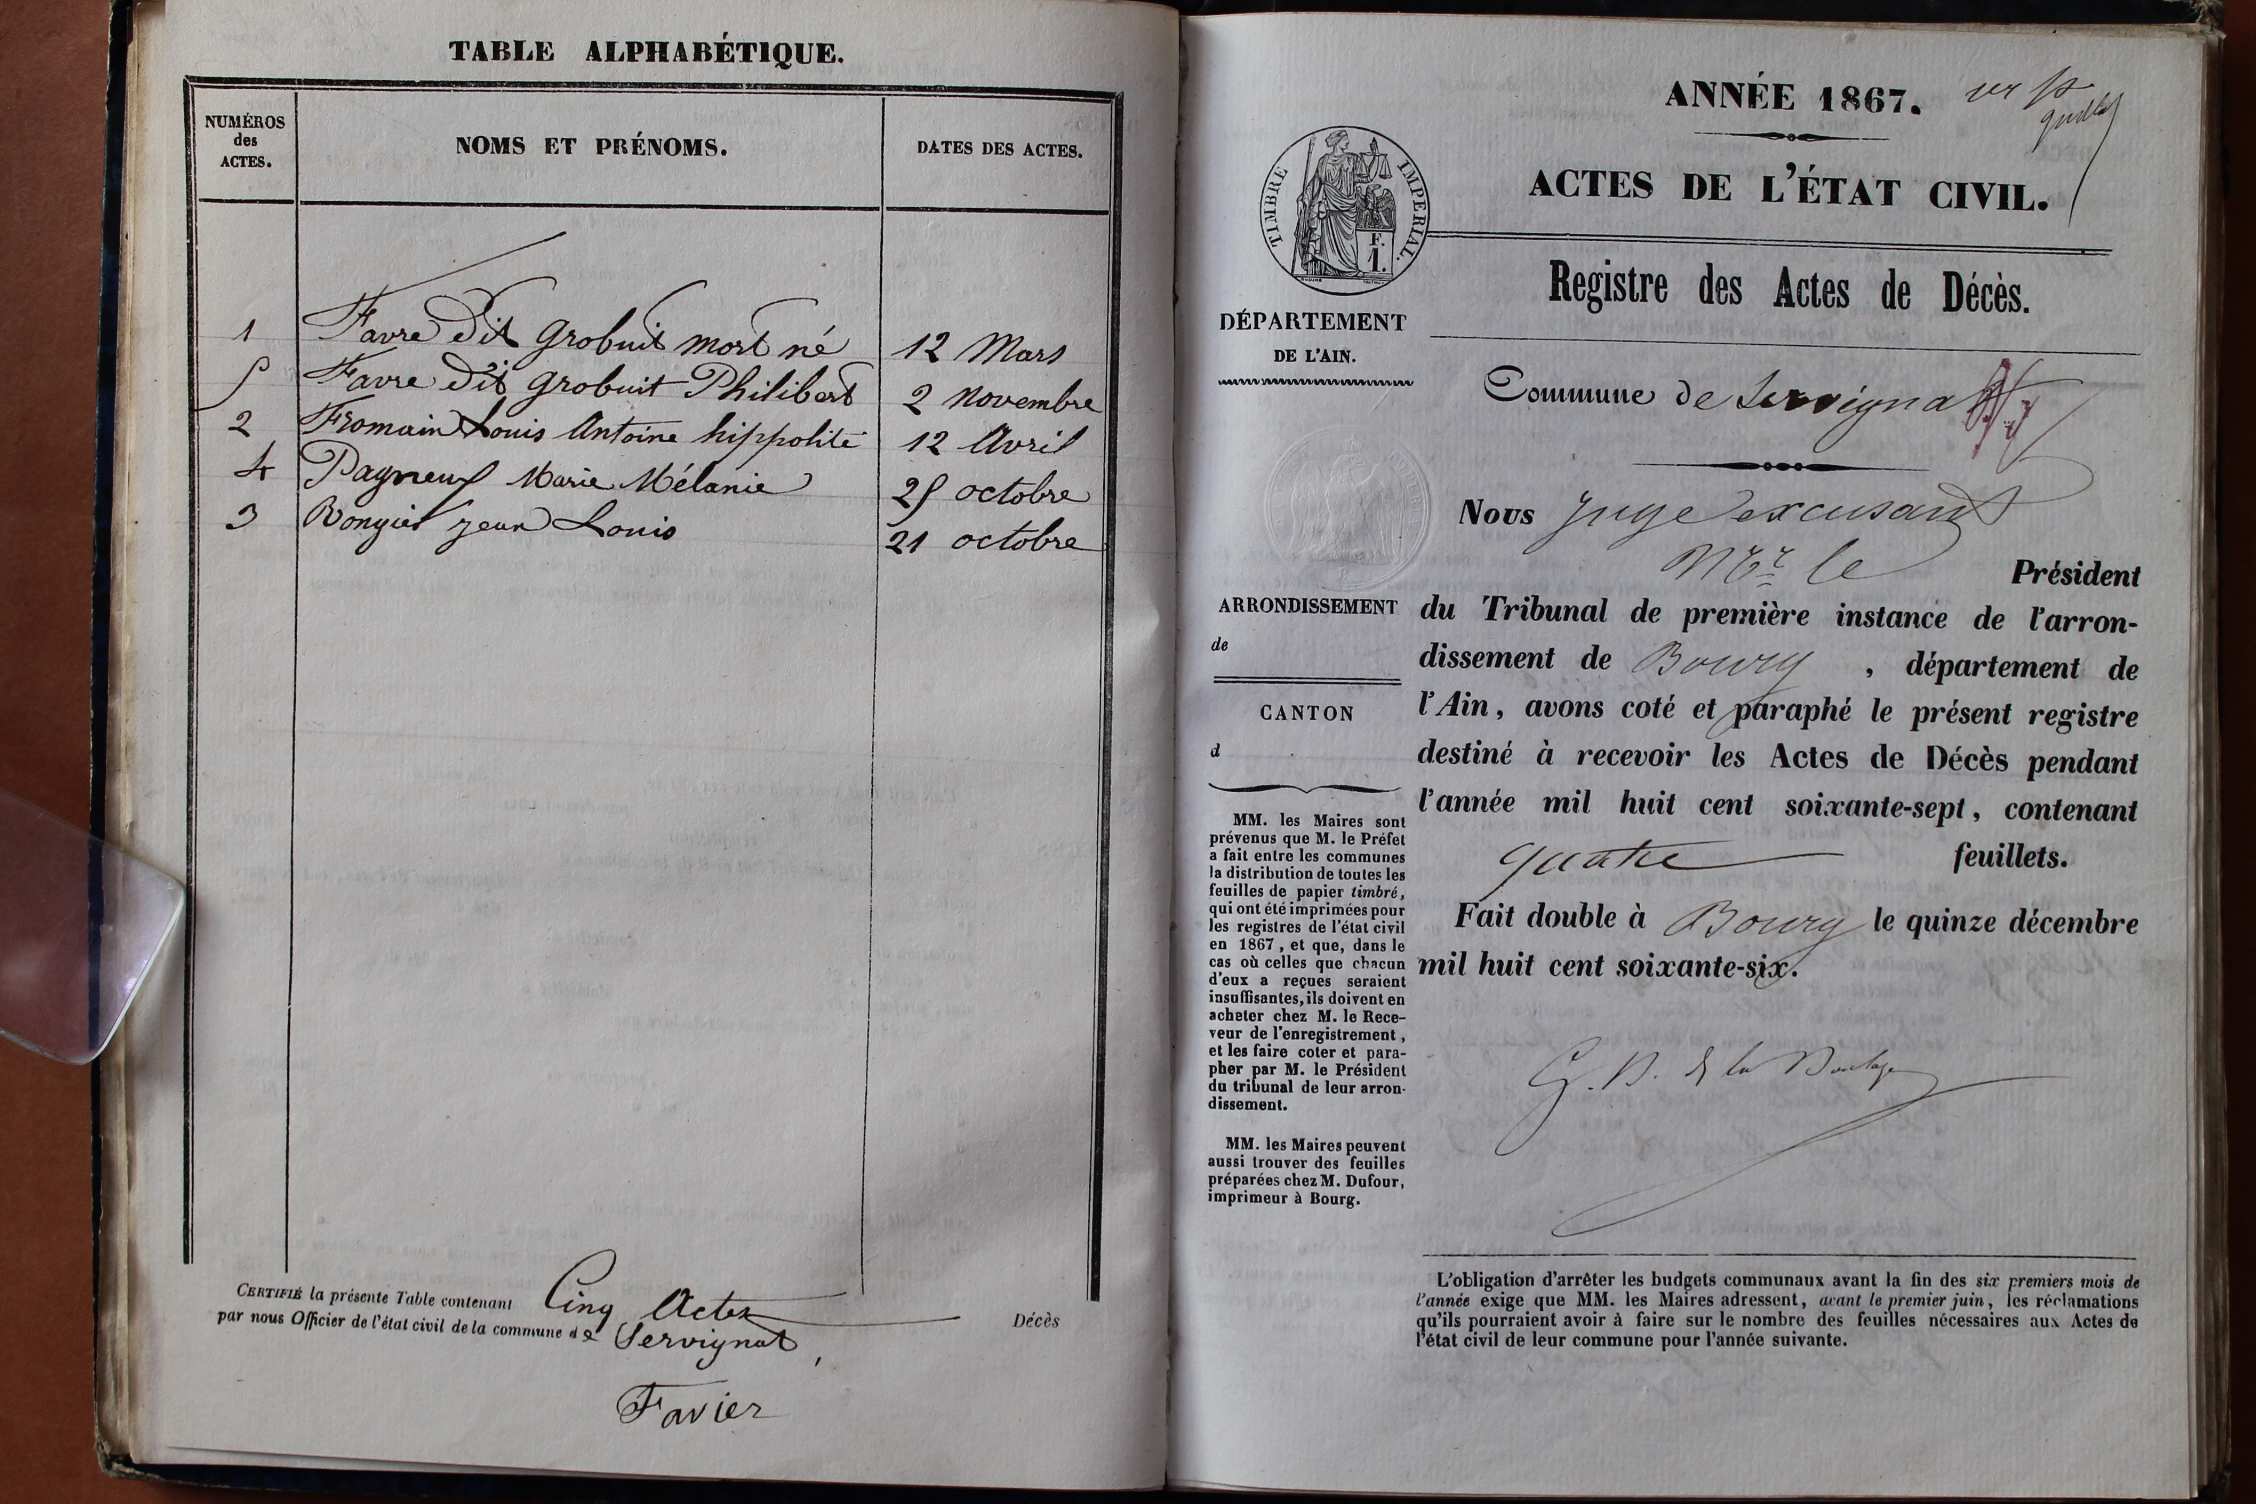 TABLE ALPHABÉTIQUE.
NUMÉROS
des
ACTES.
NOMS ET PRÉNOMS.
DATES DES ACTES.
1 Favre dit Grobuit mort né 12 Mars
5 Favre dit Grobuit Philibert 2 Novembre
2 Fromain Louis Antoine hippolite 12 Avril
4 Pagneux Marie Mélanie 25 octobre
3 jean Louis 21 octobre
CERTIFIÉ la présente Table contenant Cinq Actes Décès
par nous Officier de l'état civil de la commune de Servignat,
Favier
ANNÉE 1867.
ACTES DE L'ÉTAT CIVIL.
TIMBRE IMPERIAL.
F.
1.
Registre des Actes de Décès.
DÉPARTEMENT
DE L'AIN.
Commune de Servignat
Nous Juge excusant
Mr le Président
ARRONDISSEMENT
de
CANTON
d
du Tribunal de première instance de l'arron-
dissement de Bourg, département de
l'Ain, avons coté et paraphé le présent registre
destiné à recevoir les Actes de Décès pendant
l'année mil huit cent soixante-sept, contenant
quatre feuillets.
Fait double à Bourg le quinze décembre
mil huit cent soixante-six.
MM. les Maires sont
prévenus que M. le Préfet
a fait entre les communes
la distribution de toutes les
feuilles de papier timbré,
qui ont été imprimées pour
les registres de l'état civil
en 1867, et que, dans le
cas où celles que chacun
d'eux a reçues seraient
insuffisantes, ils doivent en
acheter chez M. le Rece-
veur de l'enregistrement,
et les faire coter et para-
pher par M. le Président
du tribunal de leur arron-
dissement.
MM. les Maires peuvent
aussi trouver des feuilles
préparées chez M. Dufour,
imprimeur à Bourg.
L'obligation d'arrêter les budgets communaux avant la fin des six premiers mois de
l'année exige que MM. les Maires adressent, avant le premier juin, les réclamations
qu'ils pourraient avoir à faire sur le nombre des feuilles nécessaires aux Actes de
l'état civil de leur commune pour l'année suivante.